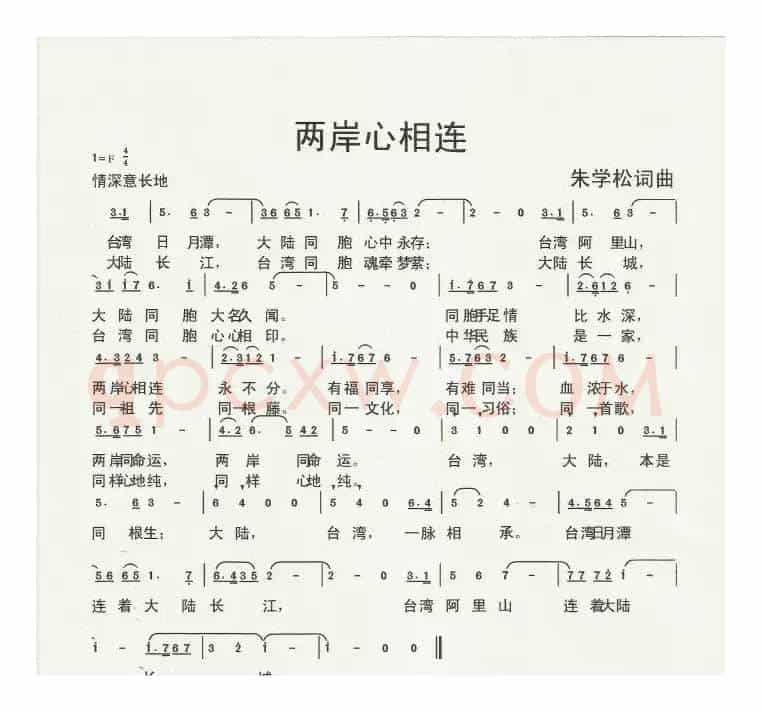 两岸心相连
1=F 4/4
情深意长地
朱学松词曲
3.1 | 5. 6 3 - | 36 65 1. 7 | 6.5 63 2 - | 2 - 0 3.1 | 5. 6 3 - |
台湾 日 月潭， 大 陆 同 胞 心中 永存； 台湾 阿 里山，
大陆 长 江， 台 湾 同 胞 魂牵 梦萦； 大陆 长 城，
3 1 1 7 6. 1 | 4.2 6 5 - | 5 - - 0 | 1.7 67 3 - | 2.6 12 3 - |
大 陆 同 胞 大名久 闻。 同胞手足情 比 水 深，
台 湾 同 胞 心心相 印。 中华民 族 是 一 家，
4.3 22 4 3 - | 2.3 12 1 - | 1.7 67 6 - | 5.7 63 2 - | 1.7 67 6 - |
两岸心相连 永 不 分。 有福同享， 有难 同当； 血 浓于水，
同一祖 先 同一根 藤。 同一 文化， 同一习俗； 同 一首歌，
5.6 75 1 - | 4.2 6. 5 42 | 5 - - 0 | 3 1 0 0 | 2 1 0 3.1 |
两岸同命运， 两 岸 同命 运。 台 湾， 大 陆， 本是
同样心地纯， 同 样 心地 纯。
5. 6 3 - | 6 4 0 0 | 5 4 0 6.4 | 5 2 4 - | 4.5 64 5 - |
同 根生； 大 陆， 台 湾， 一脉 相 承。 台湾日月潭
56 65 1. 7 | 6.4 35 2 - | 2 - - 0 3.1 | 5 6 7 - | 77 72 1 - |
连 着 大 陆 长 江， 台湾 阿 里 山 连 着大陆
1 - 1.7 67 | 3 2 1 - | 1 - 0 0 ‖
长 城
gpcxw.COM